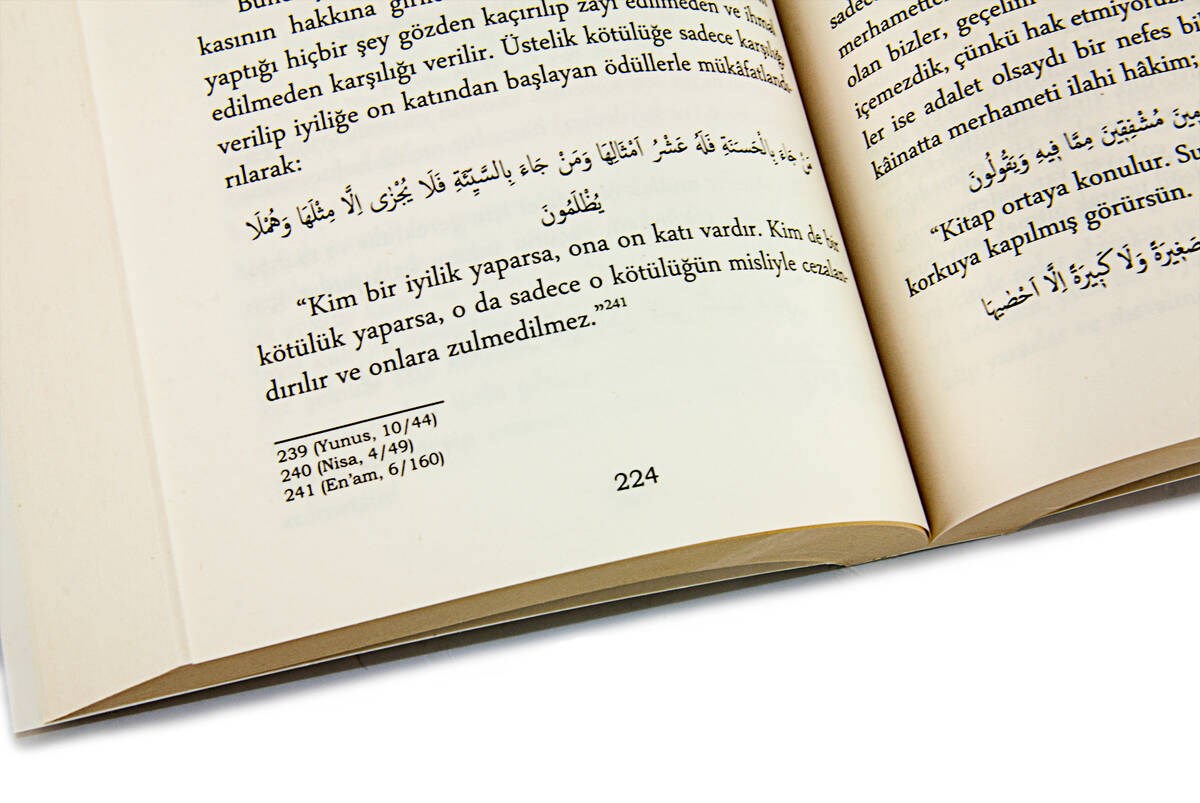 kasının hakkına
yaptığı hiçbir şey gözden kaçırılıp zayi edilmeden ve ihmal
edilmeden karşılığı verilir. Üstelik kötülüğe sadece karşılığı
verilip iyiliğe on katından başlayan ödüllerle mükâfatlandı-
rılarak:
مَنْ جَاءَ بِالْحَسَنَةِ فَلَهُ عَشْرُ اَمْثَالِهَا وَمَنْ جَاءَ بِالسَّيِّئَةِ فَلَا يُجْزٰى اِلَّا مِثْلَهَا وَهُمْلَا
يُظْلَمُونَ
“Kim bir iyilik yaparsa, ona on katı vardır. Kim de bir
kötülük yaparsa, o da sadece o kötülüğün misliyle cezalan-
dırılır ve onlara zulmedilmez.”241
239 (Yunus, 10/44)
240 (Nisa, 4/49)
241 (En’am, 6/160)
224
olan bizler, geçelim
içemezdik, çünkü hak etmiyoruz
ler ise adalet olsaydı bir nefes
kâinatta merhameti ilahi hâkim;
مُشْفِقِينَ مِمَّا فِيهِ وَيَقُولُونَ
“Kitap ortaya konulur.
korkuya kapılmış görürsün.
صَغِيرَةً وَلَا كَبِيرَةً اِلَّا اَحْصٰيهَا